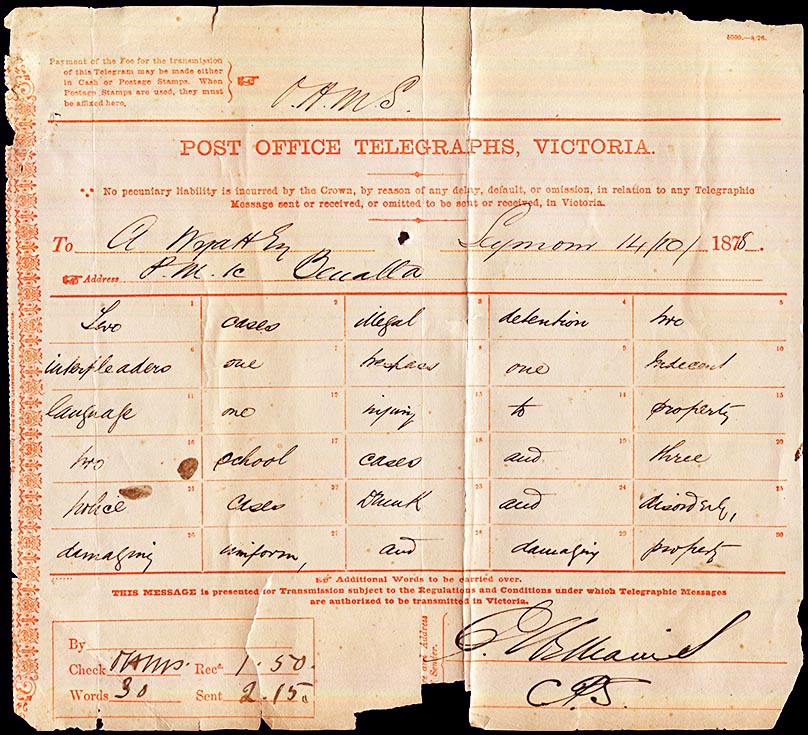 5000.—8/76.
Payment of the Fee for the transmission
of this Telegram may be made either
in Cash or Postage Stamps. When
Postage Stamps are used, they must
be affixed here.
O.H.M.S.
POST OFFICE TELEGRAPHS, VICTORIA.
No pecuniary liability is incurred by the Crown, by reason of any delay, default, or omission, in relation to any Telegraphic
Message sent or received, or omitted to be sent or received, in Victoria.
To A Wyatt Esq Seymour 14/10/ 1878.
Address P.M. &c Benalla
1 2 3 4 5
Two cases illegal detention two
6 7 8 9 10
interpleaders one trespass one indecent
11 12 13 14 15
language one injury to property
16 17 18 19 20
two school cases and three
21 22 23 24 25
police cases Drunk and disorderly,
26 27 28 29 30
damaging uniform, and damaging property
Additional Words to be carried over.
THIS MESSAGE is presented for Transmission subject to the Regulations and Conditions under which Telegraphic Messages
are authorized to be transmitted in Victoria.
By
Check OHMS. Recd. 1.50.
Words 30 Sent 2.15
Address
Sender.
C.P.S.